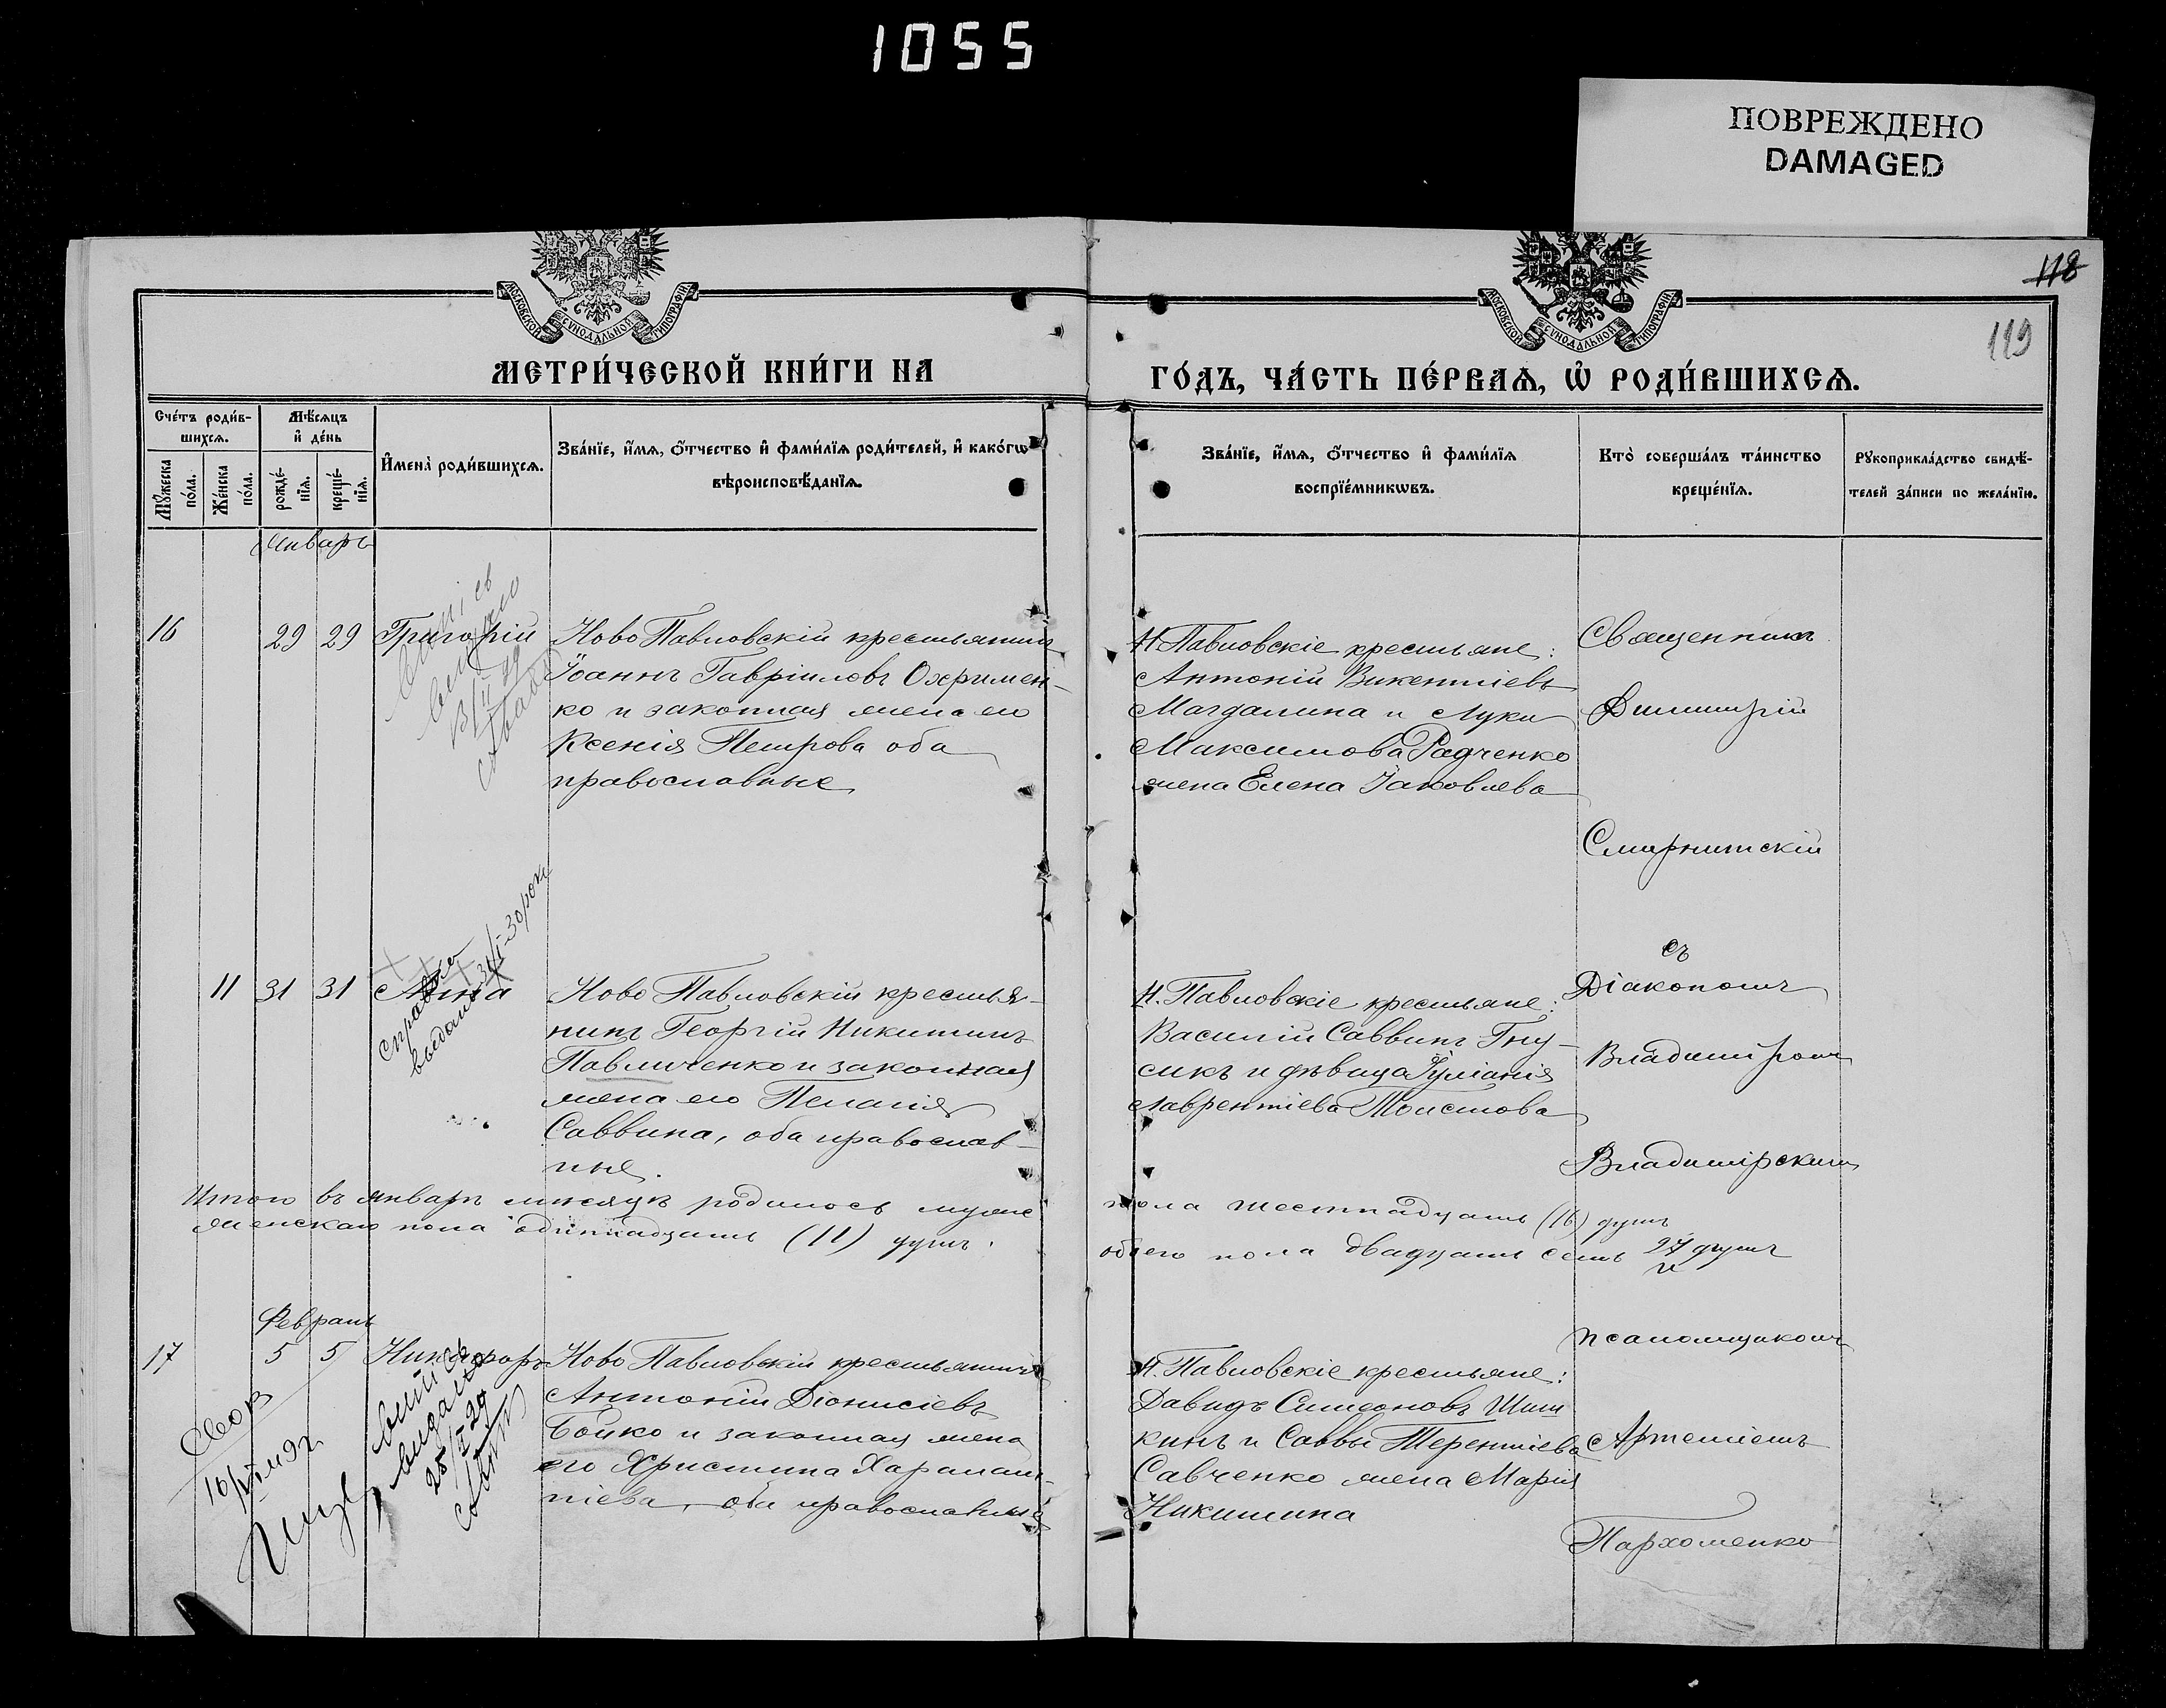 1055
ПОВРЕЖДЕНО
DAMAGED
118
119
МОСКОВСКОЙ СѴНОДАЛЬНОЙ ТИПОГРАФІИ
МОСКОВСКОЙ СѴНОДАЛЬНОЙ ТИПОГРАФІИ
МЕТРИ́ЧЕСКОЙ КНИ́ГИ НА
ГО́ДЪ, ЧА́СТЬ ПЕ́РВАѦ, Ѡ҆ РОДИ́ВШИХСѦ.
Сче́тъ роди́в-
шихсѧ.
Мѣ́сѧцъ
и҆ де́нь
Мꙋ́жеска по́ла.
Же́нска по́ла.
рожде́-
нїѧ.
креще́-
нїѧ.
И҆мена̀ роди́вшихсѧ.
Зва́нїе, и҆́мѧ, ѻ҆́тчество и҆ фами́лїѧ роди́телей, и҆ како́гѡ
вѣроисповѣ́данїѧ.
Зва́нїе, и҆́мѧ, ѻ҆́тчество и҆ фами́лїѧ
воспрїе́мникѡвъ.
Кто̀ соверша́лъ та́инство
креще́нїѧ.
Рꙋкоприкла́дство свидѣ́-
телей за́писи по жела́нїю.
Январь
16 29 29 Григорій
Ново Павловскій крестьянинъ
Іоаннъ Гавріиловъ Охримен-
ко и законная жена его
Ксенія Петрова оба
православные
Н. Павловскіе крестьяне:
Антоній Викентіевъ
Магдалина и Луки
Максимова Радченко
жена Елена Іаковлева
Священникъ
Димитрій
Смирнитскій
11 31 31 Анна
справка
выдана 31/I-30 рок
Ново Павловскій крестья-
нинъ Георгій Никитинъ
Павличенко и законная
жена его Пелагія
Саввина, оба православ-
ные.
Н. Павловскіе крестьяне:
Василій Саввинъ Гну-
сикъ и дѣвица Іуліанія
Лаврентіева Толстова
съ
Діакономъ
Владиміромъ
Владимірскимъ
Итого въ январѣ мѣсяцѣ родилось муже
женскаго пола одиннадцать (11) душъ.
пола шестнадцать (16) душъ
обоего пола двадцать семь 27 душъ
Февраль
17 5 5 Никифоръ
витягъ
видано
25/I 29
Ново Павловскій крестьянинъ
Антоній Діонисіевъ
Бойко и законная жена
его Христина Харалам-
піева, оба православные
Н. Павловскіе крестьяне:
Давидъ Симеоновъ Шиш
кинъ и Саввы Терентіева
Савченко жена Марія
Никитина
псаломщикомъ
Артеміемъ
Пархоменко